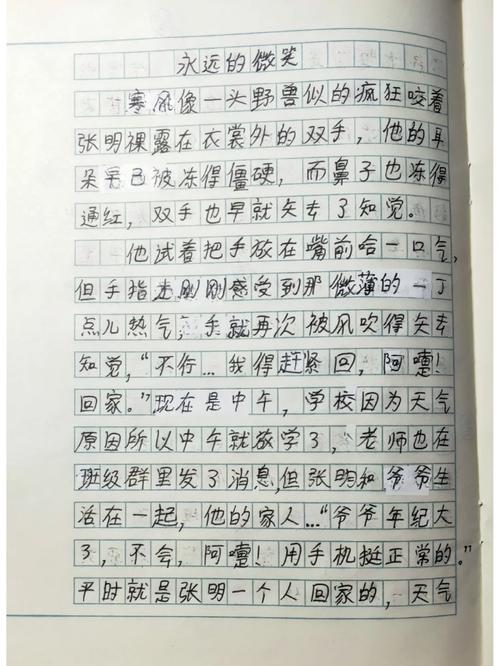 永远的微笑
寒风像一头野兽似的疯狂咬着
张明裸露在衣裳外的双手，他的耳
朵早已被冻得僵硬，而鼻子也冻得
通红，双手也早就失去了知觉。
他试着把手放在嘴前哈一口气，
但手指尖刚刚感受到那微薄的一丁
点儿热气，手就再次被风吹得失去
知觉，“不行…我得赶紧回，阿嚏！
回家。”现在是中午，学校因为天气
原因所以中午就放学了，老师也在
班级群里发了消息，但张明和爷爷生
活在一起，他的家人…“爷爷年纪大
了，不会，阿嚏！用手机挺正常的。”
平时就是张明一个人回家的，天气